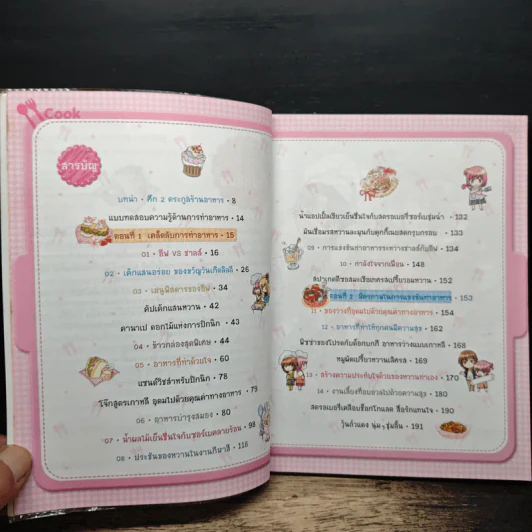 Cook
สารบัญ
บทนำ • ศึก 2 ตระกูลร้านอาหาร • 8
แบบทดสอบความรู้ด้านการทำอาหาร • 14
ตอนที่ 1 เคล็ดลับการทำอาหาร • 15
01 • อีฟ VS ชาลล์ • 16
02 • เด็กแสนอร่อย ของขวัญวันเกิดลิลลี่ • 26
03 • เมนูพิสดารของอีฟ • 34
คัปเค้กแสนหวาน • 42
คานาเป ดอกไม้แห่งการปิกนิก • 43
04 • ข้าวกล่องสุดพิเศษ • 44
05 • อาหารที่ทำด้วยใจ • 60
แซนด์วิชสำหรับปิกนิก • 78
โจ๊กสูตรเกาหลี อุดมไปด้วยคุณค่าทางอาหาร • 79
06 • อาหารบำรุงสมอง • 80
07 • น้ำผลไม้เย็นชื่นใจกับชอร์เบตคลายร้อน • 98
08 • ประชันของหวานในงานกีฬาสี • 116
น้ำแอปเปิ้ลเขียวเย็นชื่นใจกับสตรอเบอรี่ชอร์เบตชุ่มฉ่ำ • 132
มันเชื่อมรสหวานละมุนกับคุกกี้ถนอมสดกรุบกรอบ • 133
09 • การแข่งขันทำอาหารระหว่างชาลล์กับอีฟ • 134
10 • กำลังใจจากเพื่อน • 148
สปาเกตตีซอสมะเขือเทศรสเปรี้ยวอมหวาน • 152
ตอนที่ 2 มิตรภาพในการแข่งขันทำอาหาร • 153
11 • ของว่างที่อุดมไปด้วยคุณค่าทางอาหาร • 154
12 • อาหารที่ทำให้ทุกคนมีความสุข • 162
พิซซ่าของโปรดกับต๊อกบกกี อาหารว่างแบบเกาหลี • 168
หมูผัดเปรี้ยวหวานเลิศรส • 169
13 • สร้างความประทับใจด้วยของหวานทำเอง • 170
14 • งานเลี้ยงที่อบอวลไปด้วยความสุข • 180
สตรอเบอรี่เคลือบช็อกโกแลต สื่อรักแทนใจ • 190
วุ้นถั่วแดง นุ่ม ๆ ชุ่มลิ้น • 191